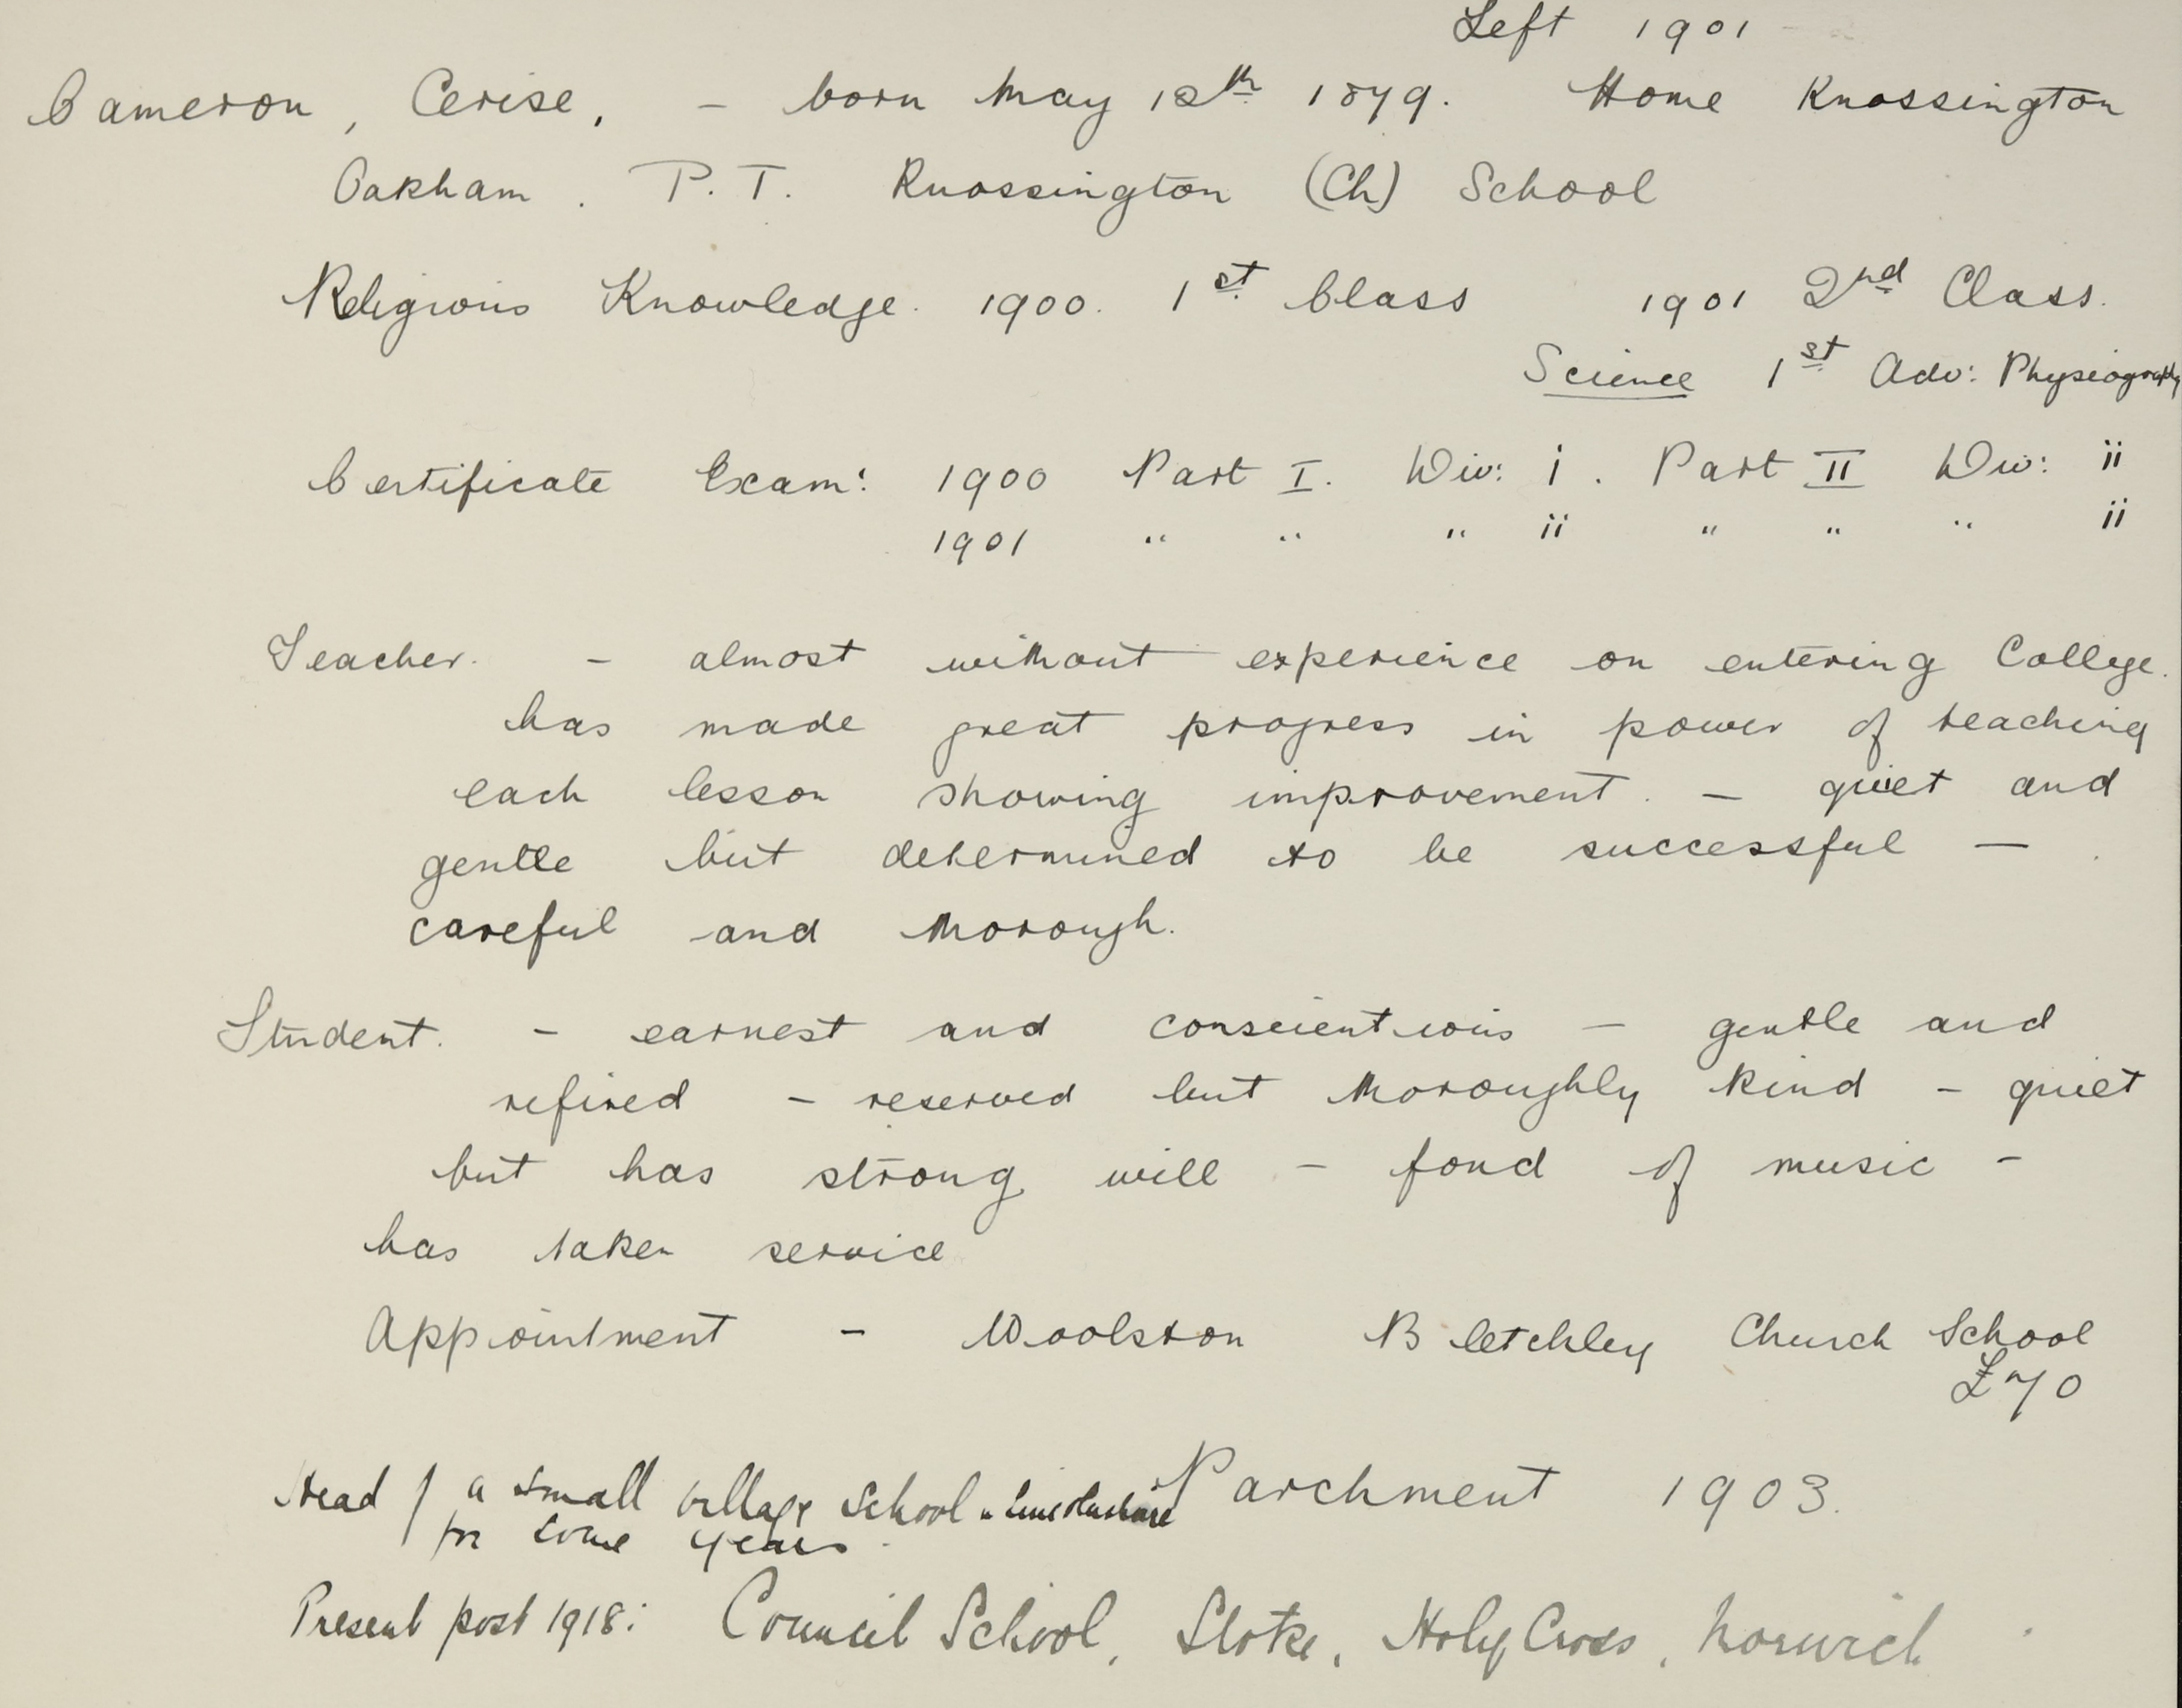 Left 1901
Cameron, Cerise, - born May 18th 1879. Home Knossington
Oakham. P.T. Knossington (Ch) School
Religious Knowledge. 1900. 1st Class 1901 2nd Class.
Science 1st Adv: Physiography
Certificate Exam: 1900 Part I. Div: i. Part II Div: ii
1901 " " " ii " " " ii
Teacher. - almost without experience on entering College.
has made great progress in power of teaching
each lesson showing improvement. - quiet and
gentle but determined to be successful -
careful and thorough.
Student. - earnest and conscientious - gentle and
refined - reserved but thoroughly kind - quiet
but has strong will - fond of music -
has taken service
Appointment - Woolston Bletchley Church School
£70
Head of a small village school in Lincolnshire Parchment 1903.
for some years.
Present post 1918: Council School, Stoke, Holy Cross, Norwich